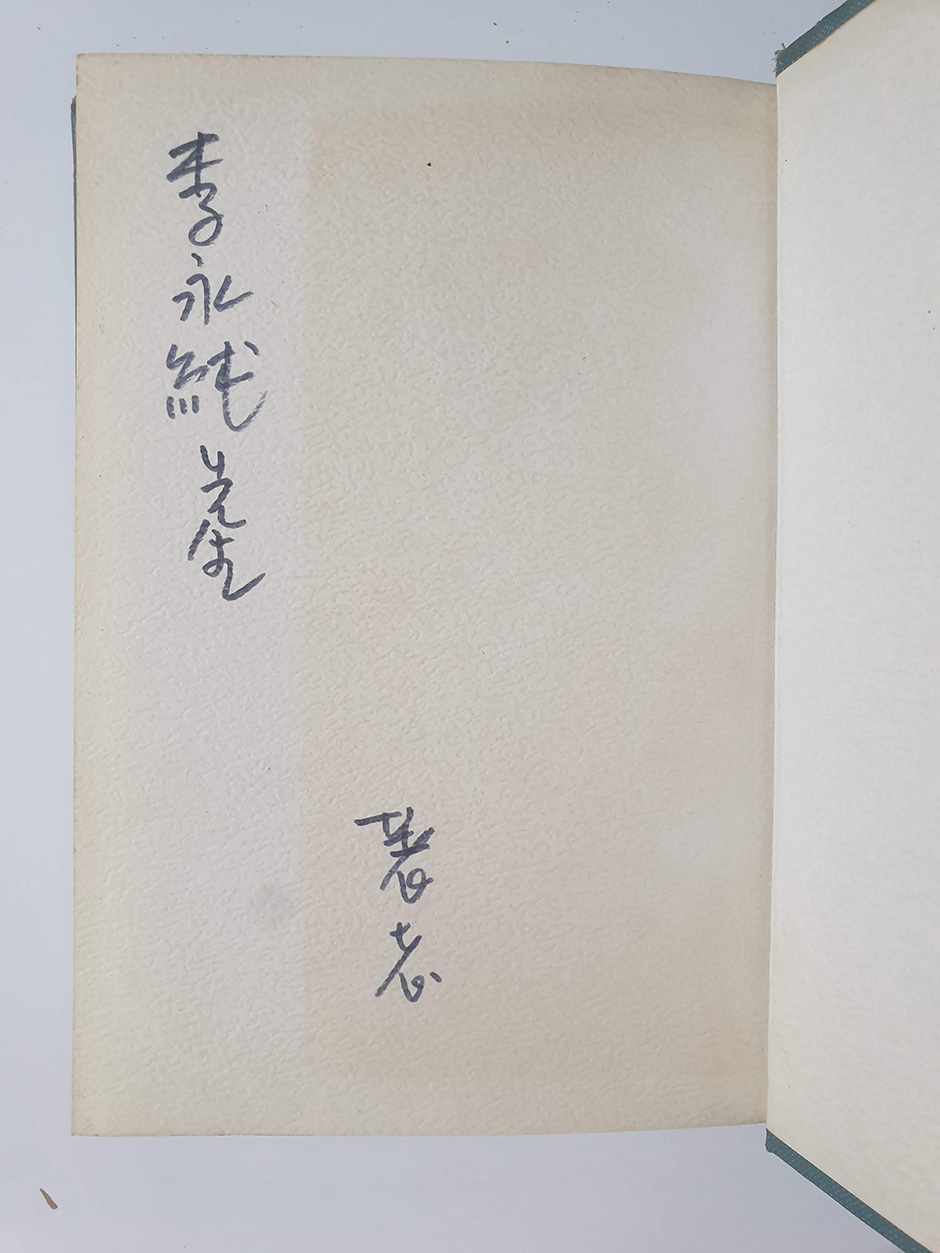 李永純先生
著者